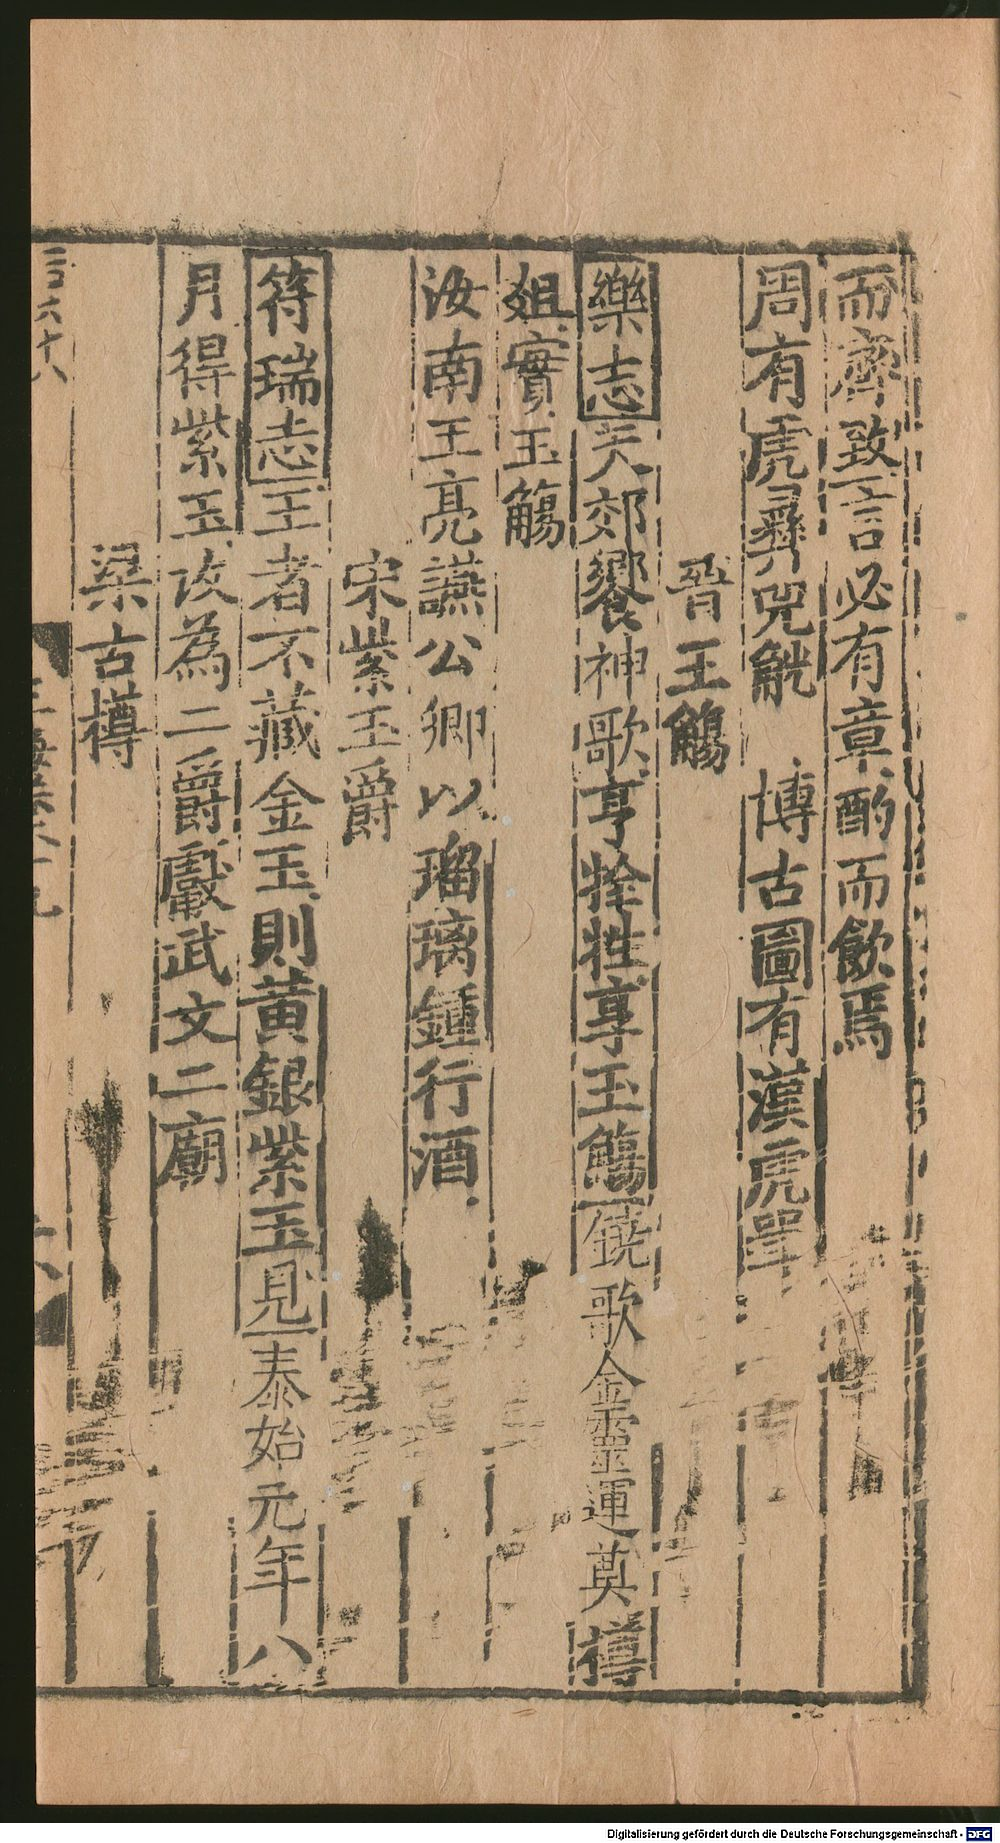 而齊致言必有章酌而飲焉
周有虎彝兕觥　博古圖有漢虎斝
晉玉觴
樂志天郊饗神歌亨牷牲享玉觴饒歌金靈運奠樽
爼實玉觴
汝南王亮讌公卿以瑠璃鍾行酒
宋紫玉爵
符瑞志王者不藏金玉則黃銀紫玉見泰始元年八
月得紫玉改為二爵獻武文二廟
梁古樽
Digitalisierung gefördert durch die Deutsche Forschungsgemeinschaft - DFG